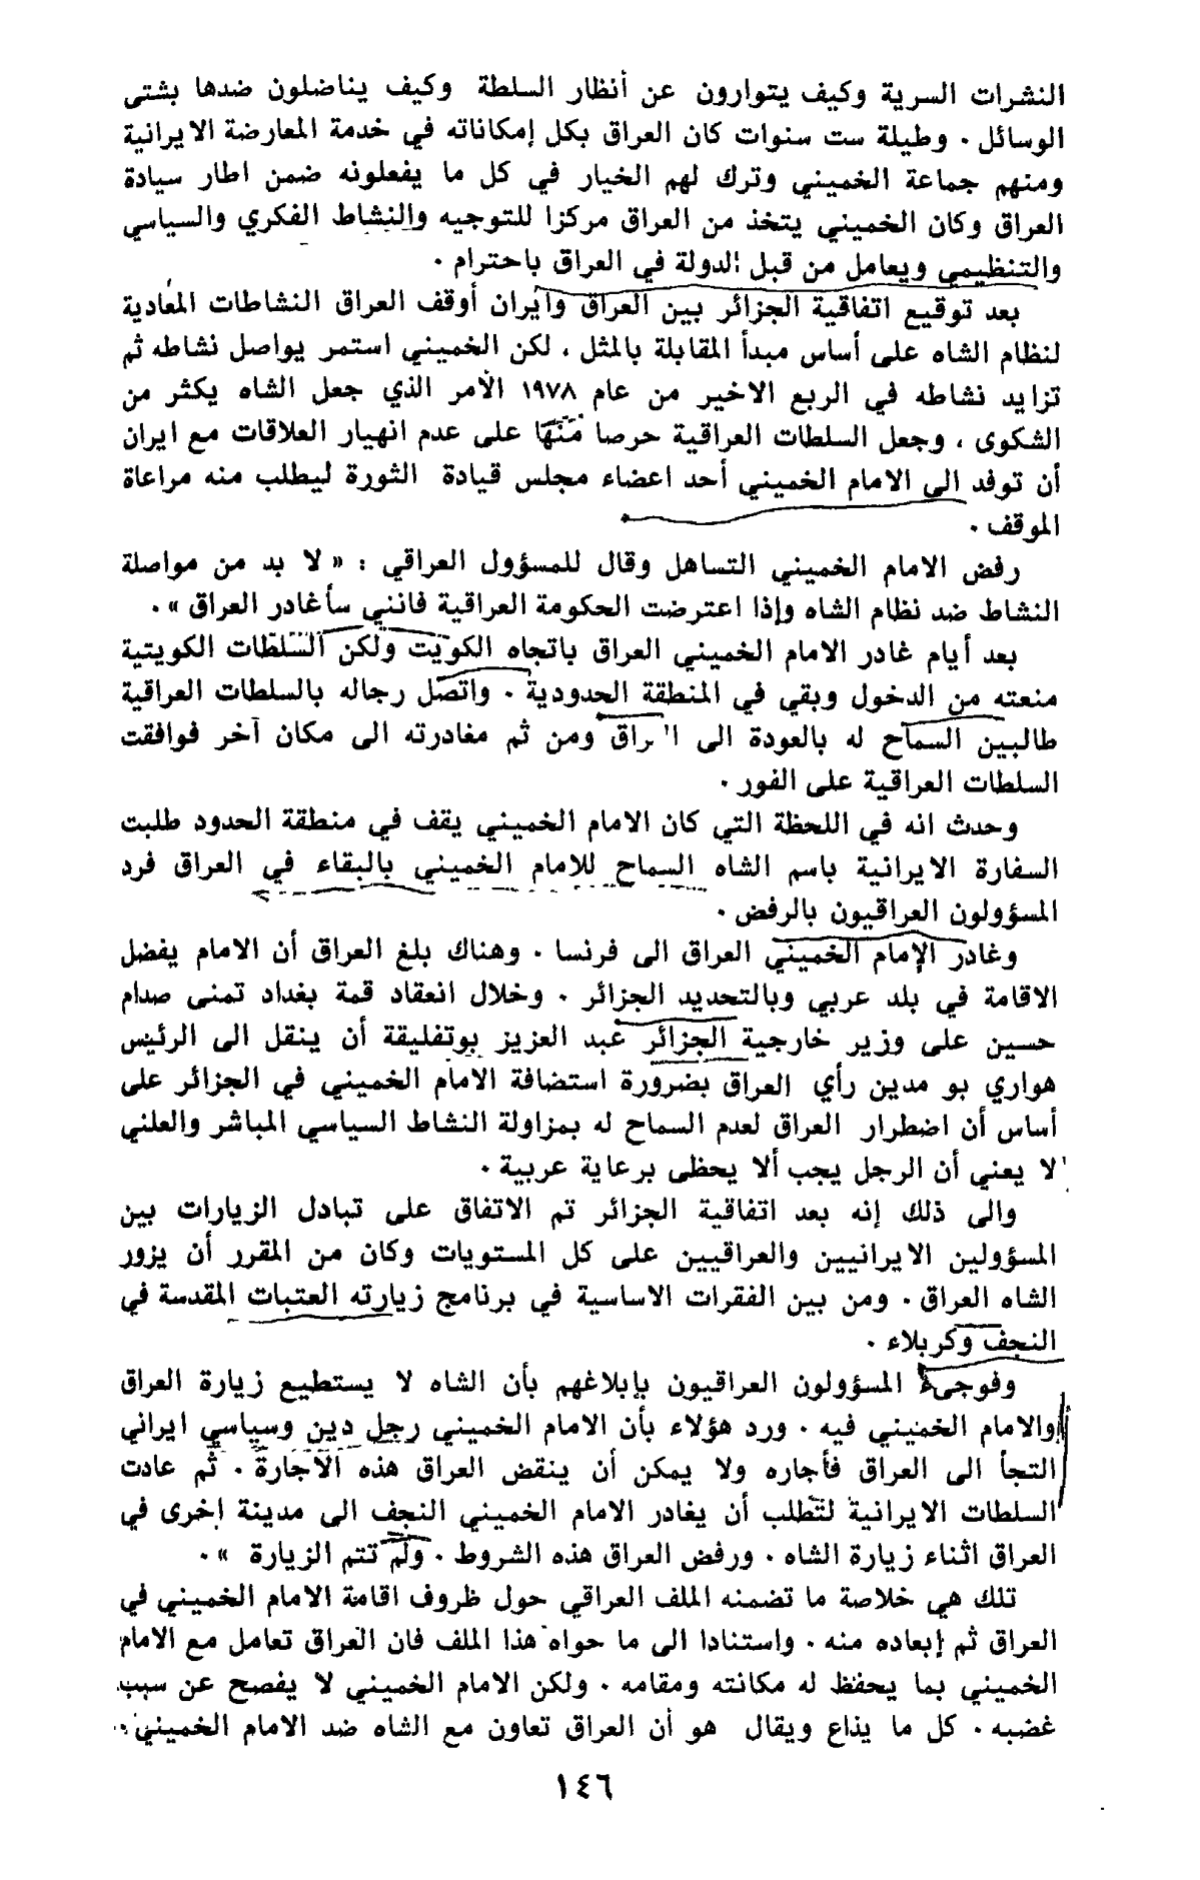 النشرات السرية وكيف يتوارون عن أنظار السلطة وكيف يناضلون ضدها بشتى
الوسائل . وطيلة ست سنوات كان العراق بكل إمكاناته في خدمة المعارضة الايرانية
ومنهم جماعة الخميني وترك لهم الخيار في كل ما يفعلونه ضمن اطار سيادة
العراق وكان الخميني يتخذ من العراق مركزا للتوجيه والنشاط الفكري والسياسي
والتنظيمي ويعامل من قبل الدولة في العراق باحترام .
بعد توقيع اتفاقية الجزائر بين العراق وايران أوقف العراق النشاطات المعادية
لنظام الشاه على أساس مبدأ المقابلة بالمثل ، لكن الخميني استمر يواصل نشاطه ثم
تزايد نشاطه في الربع الاخير من عام ١٩٧٨ الأمر الذي جعل الشاه يكثر من
الشكوى ، وجعل السلطات العراقية حرصا منها على عدم انهيار العلاقات مع ايران
أن توفد الى الامام الخميني أحد اعضاء مجلس قيادة الثورة ليطلب منه مراعاة
الموقف .
رفض الامام الخميني التساهل وقال للمسؤول العراقي : « لا بد من مواصلة
النشاط ضد نظام الشاه وإذا اعترضت الحكومة العراقية فانني سأغادر العراق » .
بعد أيام غادر الامام الخميني العراق باتجاه الكويت ولكن السلطات الكويتية
منعته من الدخول وبقي في المنطقة الحدودية . واتصل رجاله بالسلطات العراقية
طالبين السماح له بالعودة الى العراق ومن ثم مغادرته الى مكان آخر فوافقت
السلطات العراقية على الفور .
وحدث انه في اللحظة التي كان الامام الخميني يقف في منطقة الحدود طلبت
السفارة الايرانية باسم الشاه السماح للامام الخميني بالبقاء في العراق فرد
المسؤولون العراقيون بالرفض .
وغادر الإمام الخميني العراق الى فرنسا . وهناك بلغ العراق أن الامام يفضل
الاقامة في بلد عربي وبالتحديد الجزائر . وخلال انعقاد قمة بغداد تمنى صدام
حسين على وزير خارجية الجزائر عبد العزيز بوتفليقة أن ينقل الى الرئيس
هواري بو مدين رأي العراق بضرورة استضافة الامام الخميني في الجزائر على
أساس أن اضطرار العراق لعدم السماح له بمزاولة النشاط السياسي المباشر والعلني
لا يعني أن الرجل يجب ألا يحظى برعاية عربية .
والى ذلك إنه بعد اتفاقية الجزائر تم الاتفاق على تبادل الزيارات بين
المسؤولين الايرانيين والعراقيين على كل المستويات وكان من المقرر أن يزور
الشاه العراق . ومن بين الفقرات الاساسية في برنامج زيارته العتبات المقدسة في
النجف وكربلاء .
وفوجىء المسؤولون العراقيون بإبلاغهم بأن الشاه لا يستطيع زيارة العراق
والامام الخميني فيه . ورد هؤلاء بأن الامام الخميني رجل دين وسياسي ايراني
التجأ الى العراق فأجاره ولا يمكن أن ينقض العراق هذه الاجارة . ثم عادت
السلطات الايرانية لتطلب أن يغادر الامام الخميني النجف الى مدينة إخرى في
العراق اثناء زيارة الشاه . ورفض العراق هذه الشروط . ولم تتم الزيارة » .
تلك هي خلاصة ما تضمنه الملف العراقي حول ظروف اقامة الامام الخميني في
العراق ثم إبعاده منه . واستنادا الى ما حواه هذا الملف فان العراق تعامل مع الامام
الخميني بما يحفظ له مكانته ومقامه . ولكن الامام الخميني لا يفصح عن سبب
غضبه . كل ما يذاع ويقال هو أن العراق تعاون مع الشاه ضد الامام الخميني .
١٤٦